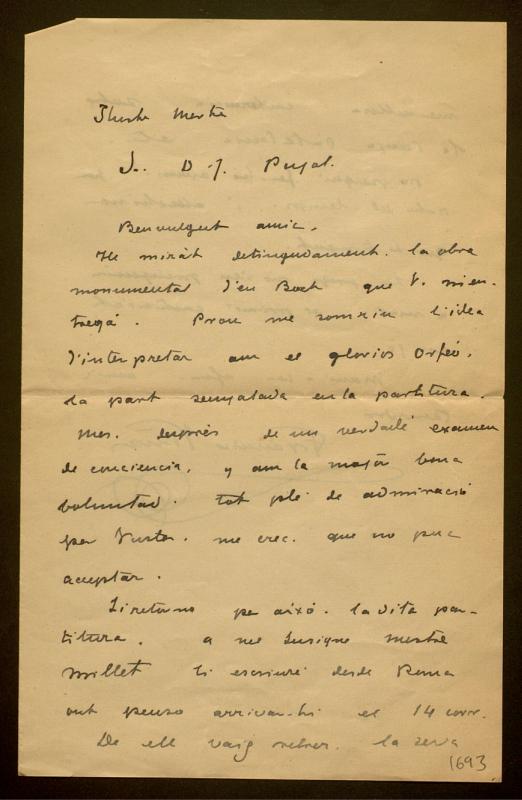 Ilustre Mestre
Sr. D. J. Pujol.
Benvolgut amic.
He mirat detingudament. la obra
monumental d'en Bach que V. m'en-
tregá. Prou me somriu l'idea
d'interpretar am el glorios Orfeó.
la part senyalada en la partitura.
mes. després de un verdadé examen
de conciencia, y am la major bona
voluntad. tot plé de admiració
per Vusté. me crec. que no puc
aceptar.
Li retorno per aixó. la dita par-
titura. a ne Insigne mestre
Millet li escriuré desde Roma
ont penso arrivar-hi el 14 corr.
De ell vaig rebrer. la seva
1693